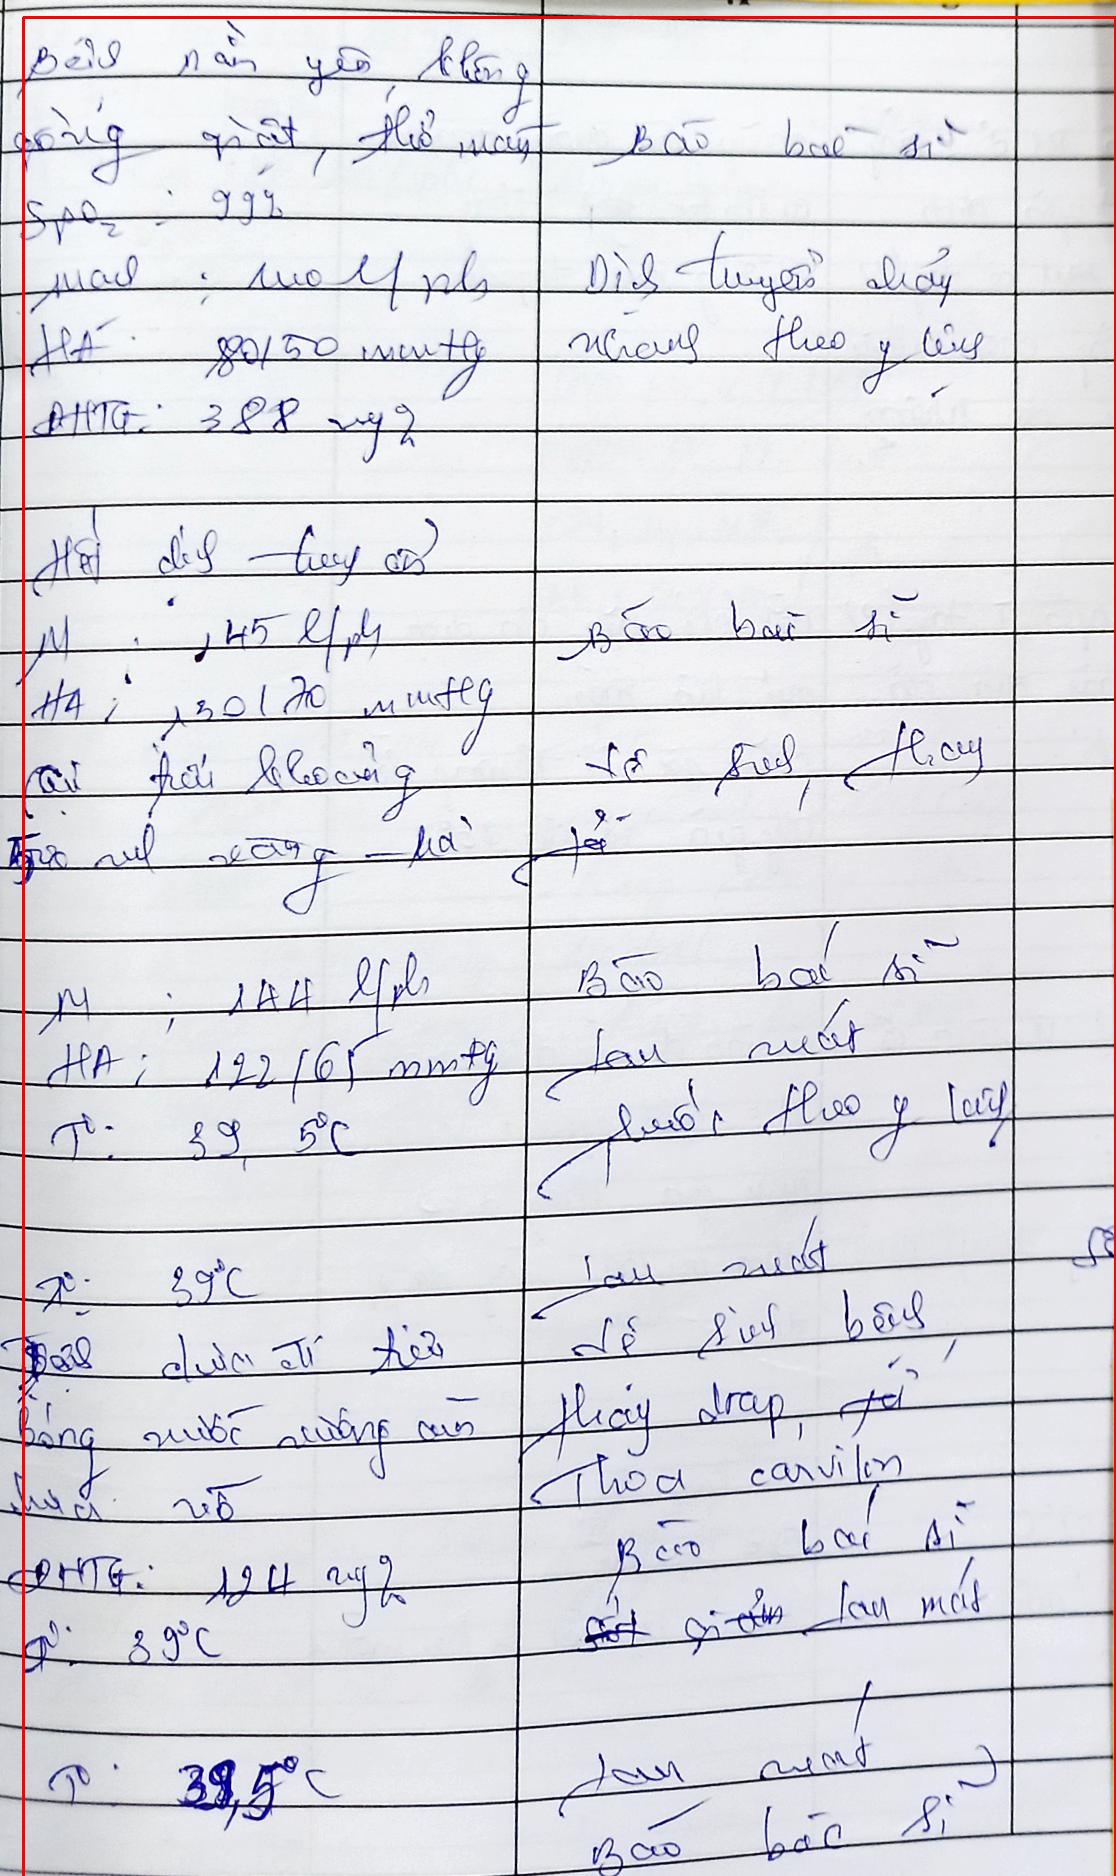 Bệnh nằm yên, không
gồng giật, thở máy
Báo bác sĩ
SpO2 : 99%
Mạch : 140 l/ph
Dịch truyền chảy
HA : 80/50 mmHg
nhanh theo y lệnh
ĐHTG: 388 mg%
Hết dịch truyền
M : 145 l/ph
Báo bác sĩ
HA : 130/70 mmHg
vệ sinh, thay
tả
M : 144 l/ph
Báo bác sĩ
HA : 122/65 mmHg
Lau mát
T°: 39,5°C
thuốc theo y lệnh
T°: 39°C
Lau mát
Vệ sinh bệnh,
bóng nước
thay drap, tả
chưa vỡ
Thoa cavilon
ĐHTG: 124 mg%
Báo bác sĩ
T°: 39°C
lau mát
T°: ,5°C
Lau mát
Báo bác sĩ